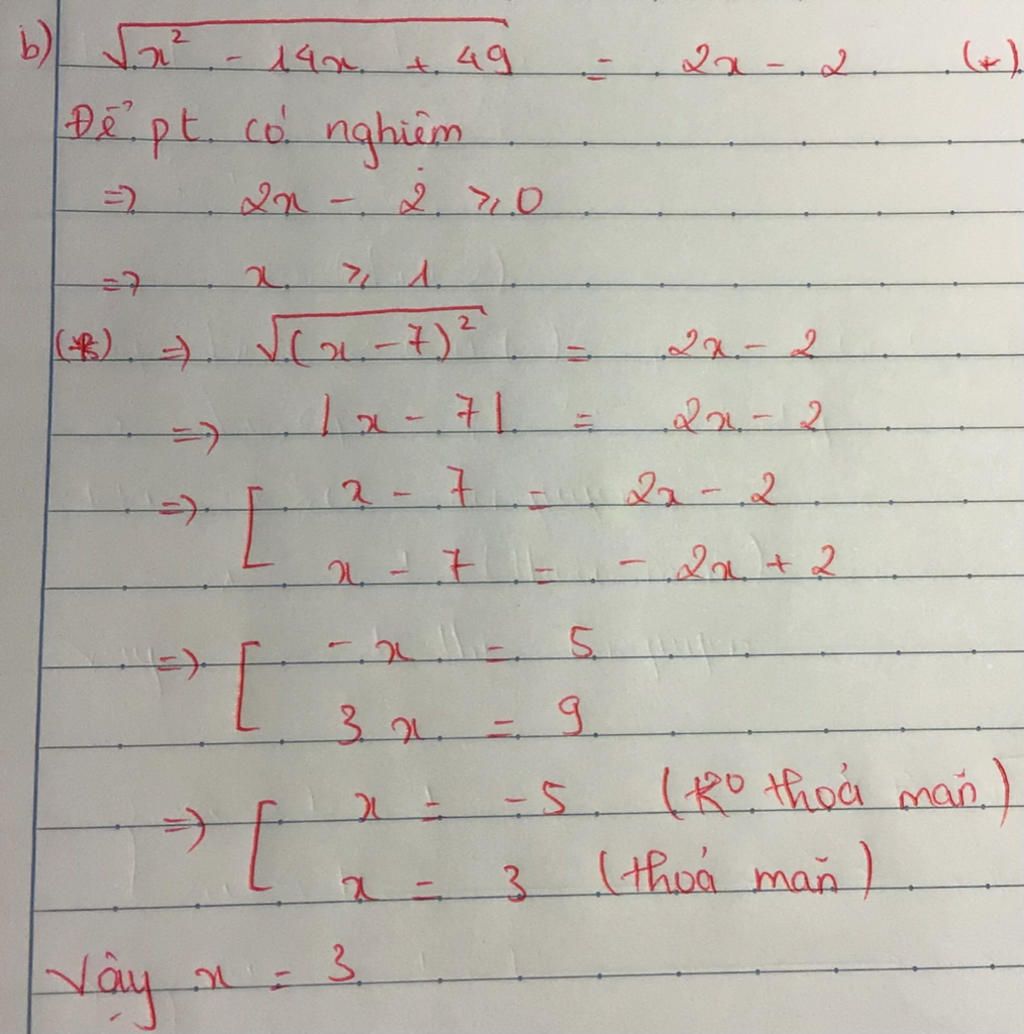 b) √(x² - 14x + 49) = 2x - 2 (*)
Để pt có nghiệm
=> 2x - 2 ≥ 0
=> x ≥ 1
(*) => √((x - 7)²) = 2x - 2
=> |x - 7| = 2x - 2
=> [ x - 7 = 2x - 2
x - 7 = - 2x + 2
=> [ - x = 5
3x = 9
=> [ x = -5 (k⁰ thoả mãn)
x = 3 (thoả mãn)
Vậy x = 3